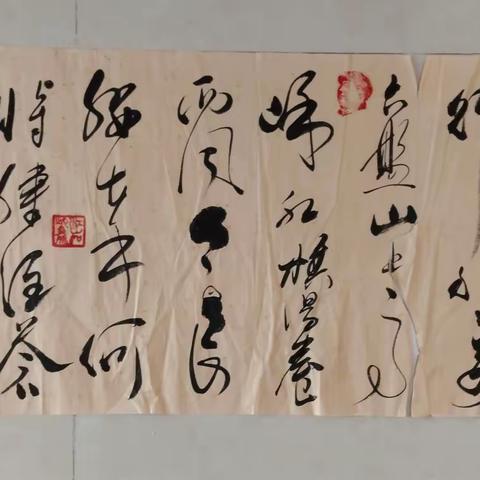 六盤山上高
峰红旗漫卷
西风今日长
缨在手何
时缚住苍